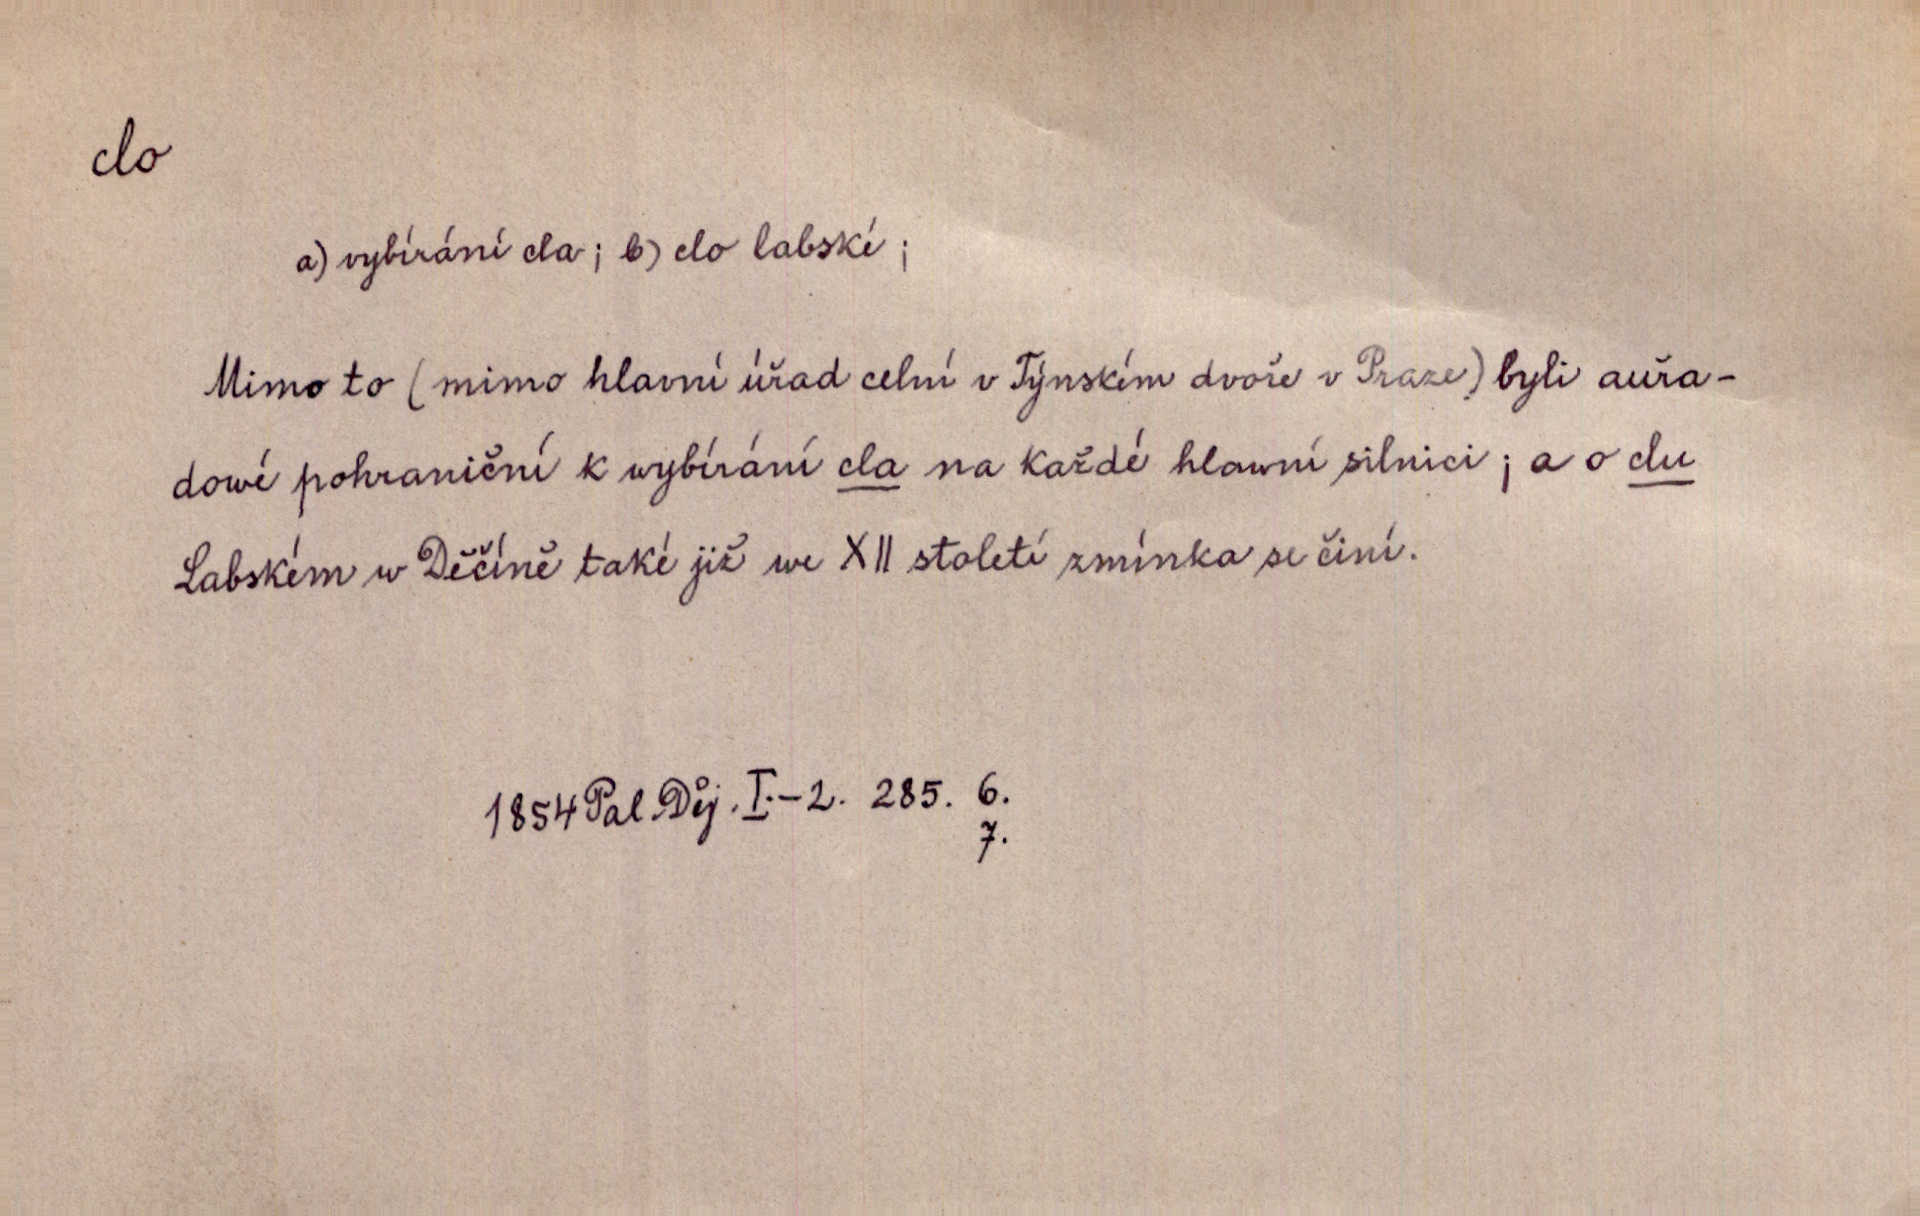 clo
a) vybírání cla; b) clo labské;
Mimo to (mimo hlavní úřad celní v Týnském dvoře v Praze) byli auřa-
dowé pohraniční k wybírání cla na každé hlawní silnici; a o clu
Labském w Děčíně také již we XII století zmínka se činí.
1854 Pal. Děj. I.-2. 285. 6.
7.